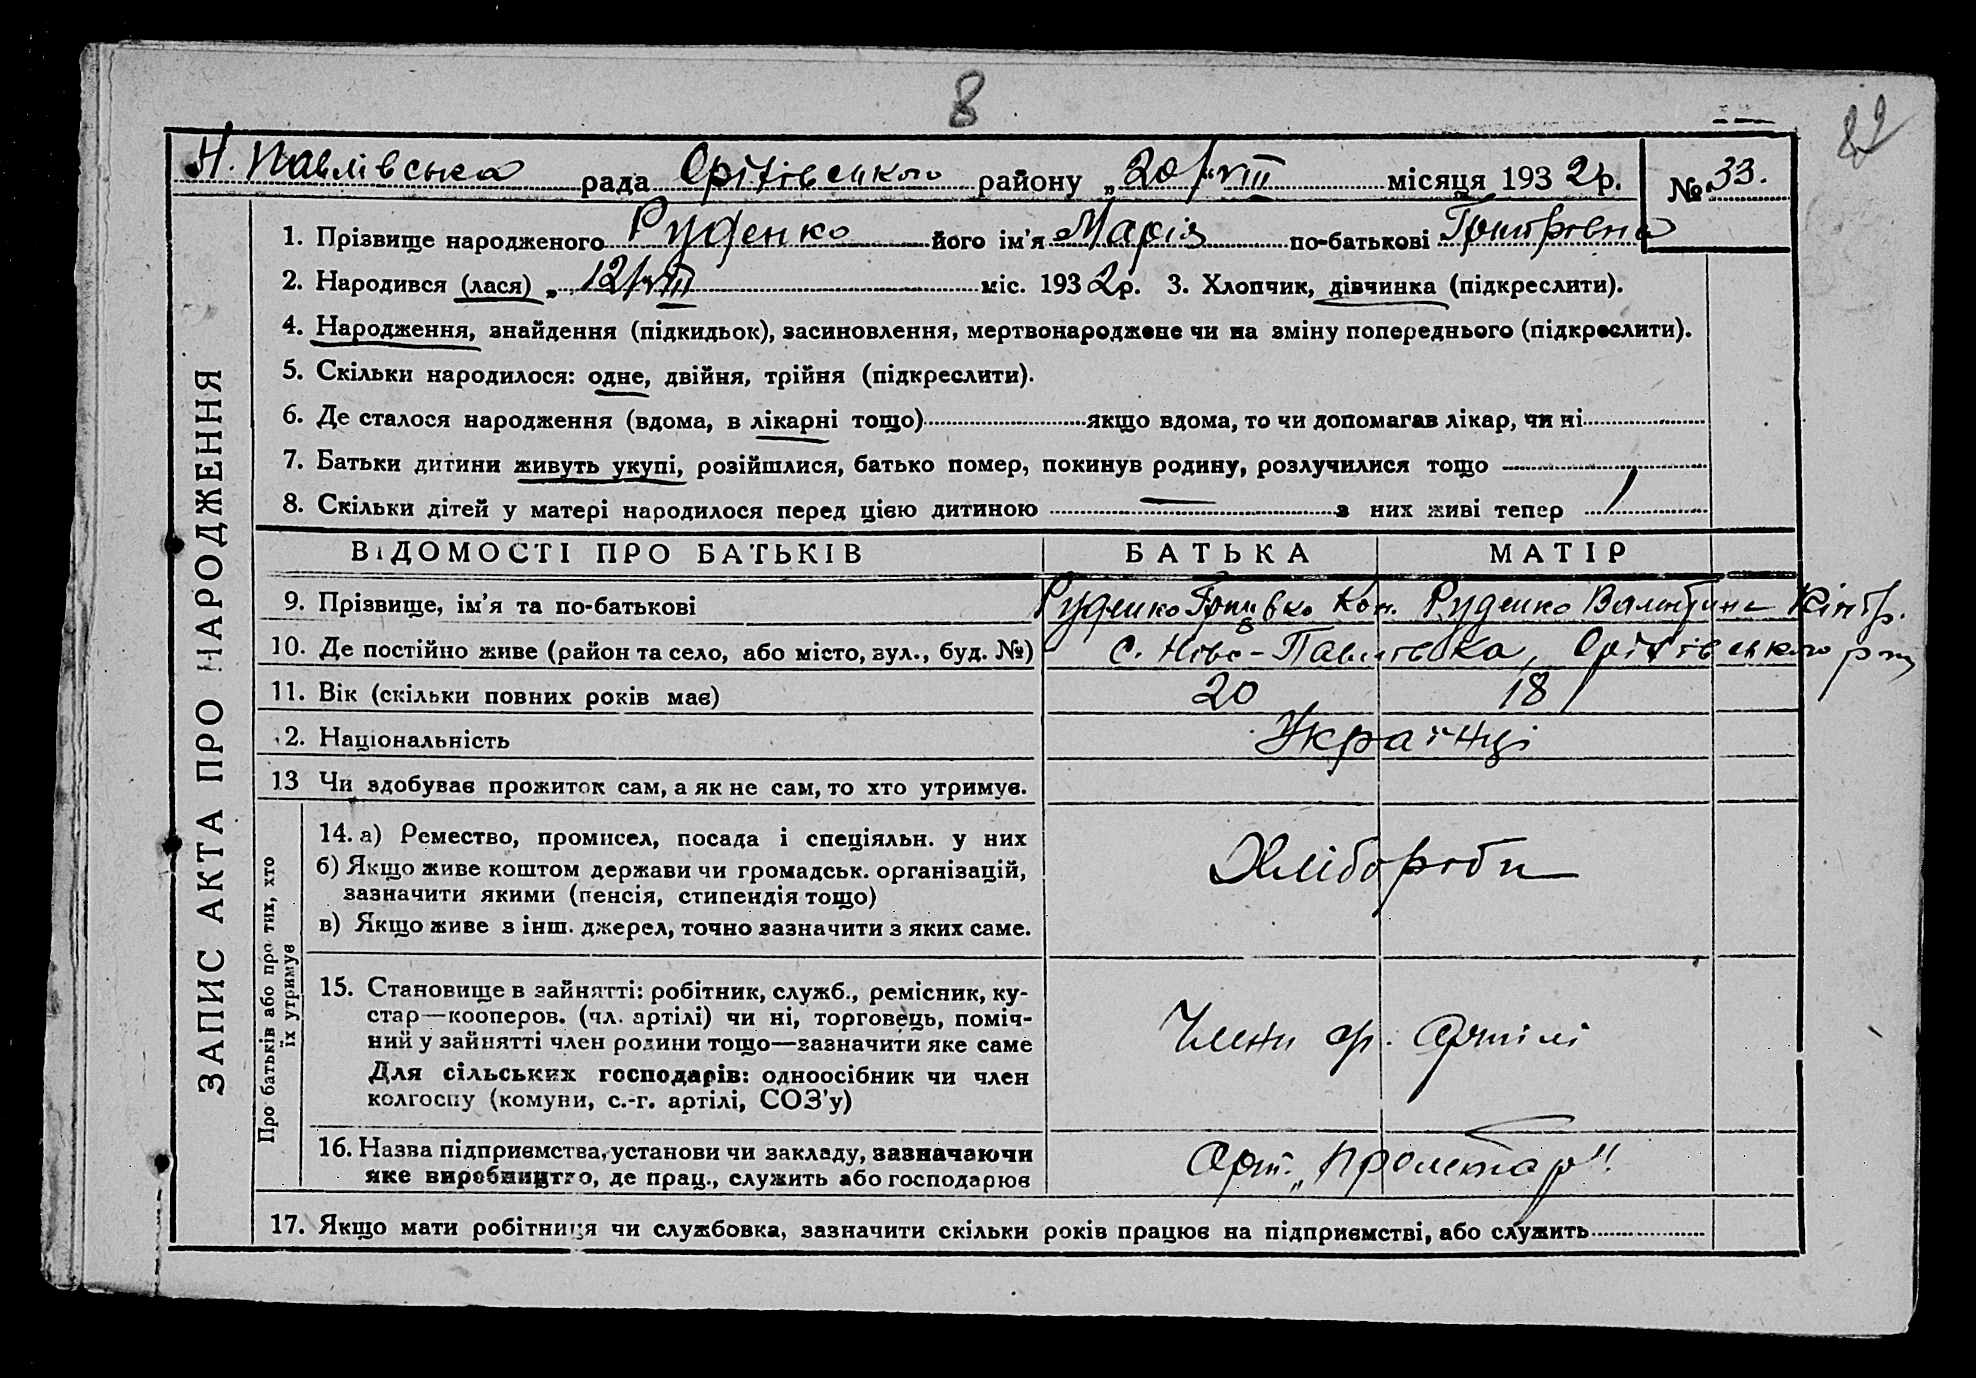 8
82
Н. Павлівська рада Оріхівського району „20/"VIII місяця 1932р. № 33.
1. Прізвище народженого Руденко його ім'я Марія по-батькові
2. Народився (лася) „ 12/VIII міс. 1932р. 3. Хлопчик, дівчинка (підкреслити).
4. Народження, знайдення (підкидьок), засиновлення, мертвонароджене чи на зміну попереднього (підкреслити).
5. Скільки народилося: одне, двійня, трійня (підкреслити).
6. Де сталося народження (вдома, в лікарні тощо) якщо вдома, то чи допомагав лікар, чи ні
7. Батьки дитини живуть укупі, розійшлися, батько помер, покинув родину, розлучилися тощо
8. Скільки дітей у матері народилося перед цією дитиною — з них живі тепер 1
ЗАПИС АКТА ПРО НАРОДЖЕННЯ
ВІДОМОСТІ ПРО БАТЬКІВ БАТЬКА МАТІР
9. Прізвище, ім'я та по-батькові Руденко Кон. Руденко Валентина
10. Де постійно живе (район та село, або місто, вул., буд. №) с. Ново-Павлівка, Оріхівського р-ну
11. Вік (скільки повних років має) 20 18
12. Національність Українці
13 Чи здобуває прожиток сам, а як не сам, то хто утримує.
Про батьків або про тих, хто
їх утримує
14. а) Ремество, промисел, посада і спеціяльн. у них
б) Якщо живе коштом держави чи громадськ. організацій,
зазначити якими (пенсія, стипендія тощо)
в) Якщо живе з інш. джерел, точно зазначити з яких саме.
Хлібороби
15. Становище в зайнятті: робітник, служб., ремісник, ку-
стар—кооперов. (чл. артілі) чи ні, торговець, поміч-
ний у зайнятті член родини тощо—зазначити яке саме
Для сільських господарів: одноосібник чи член
колгоспу (комуни, с.-г. артілі, СОЗ'у)
Члени ср. Артілі
16. Назва підприємства, установи чи закладу, зазначаючи
яке виробництво, де прац., служить або господарює
Арт. „Пролетар".
17. Якщо мати робітниця чи службовка, зазначити скільки років працює на підприємстві, або служить